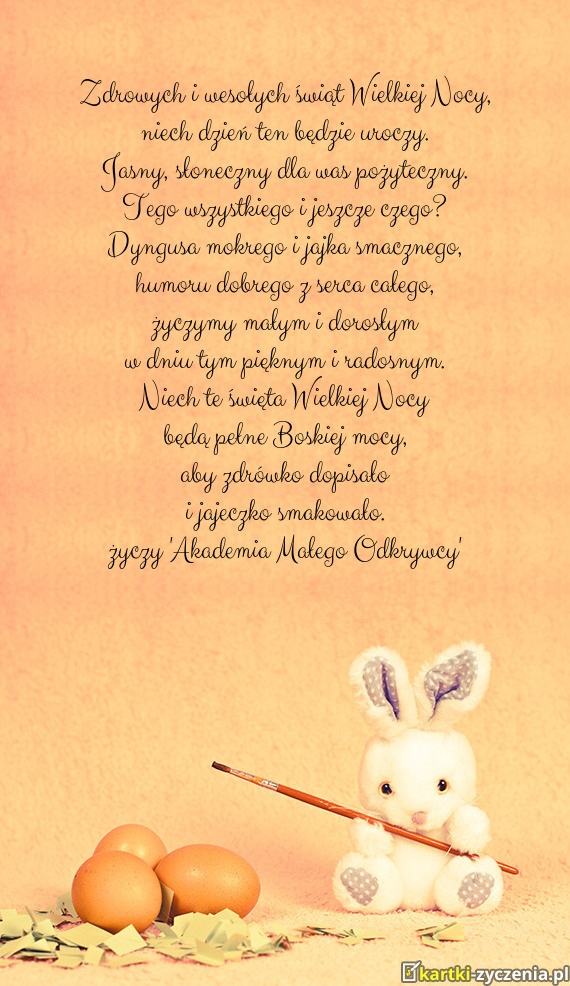 Zdrowych i wesołych świąt Wielkiej Nocy,
niech dzień ten będzie uroczy.
Jasny, słoneczny dla was pożyteczny.
Tego wszystkiego i jeszcze czego?
Dyngusa mokrego i jajka smacznego,
humoru dobrego z serca całego,
życzymy małym i dorosłym
w dniu tym pięknym i radosnym.
Niech te święta Wielkiej Nocy
będą pełne Boskiej mocy,
aby zdrówko dopisało
i jajeczko smakowało.
życzy 'Akademia Małego Odkrywcy'
kartki-zyczenia.pl